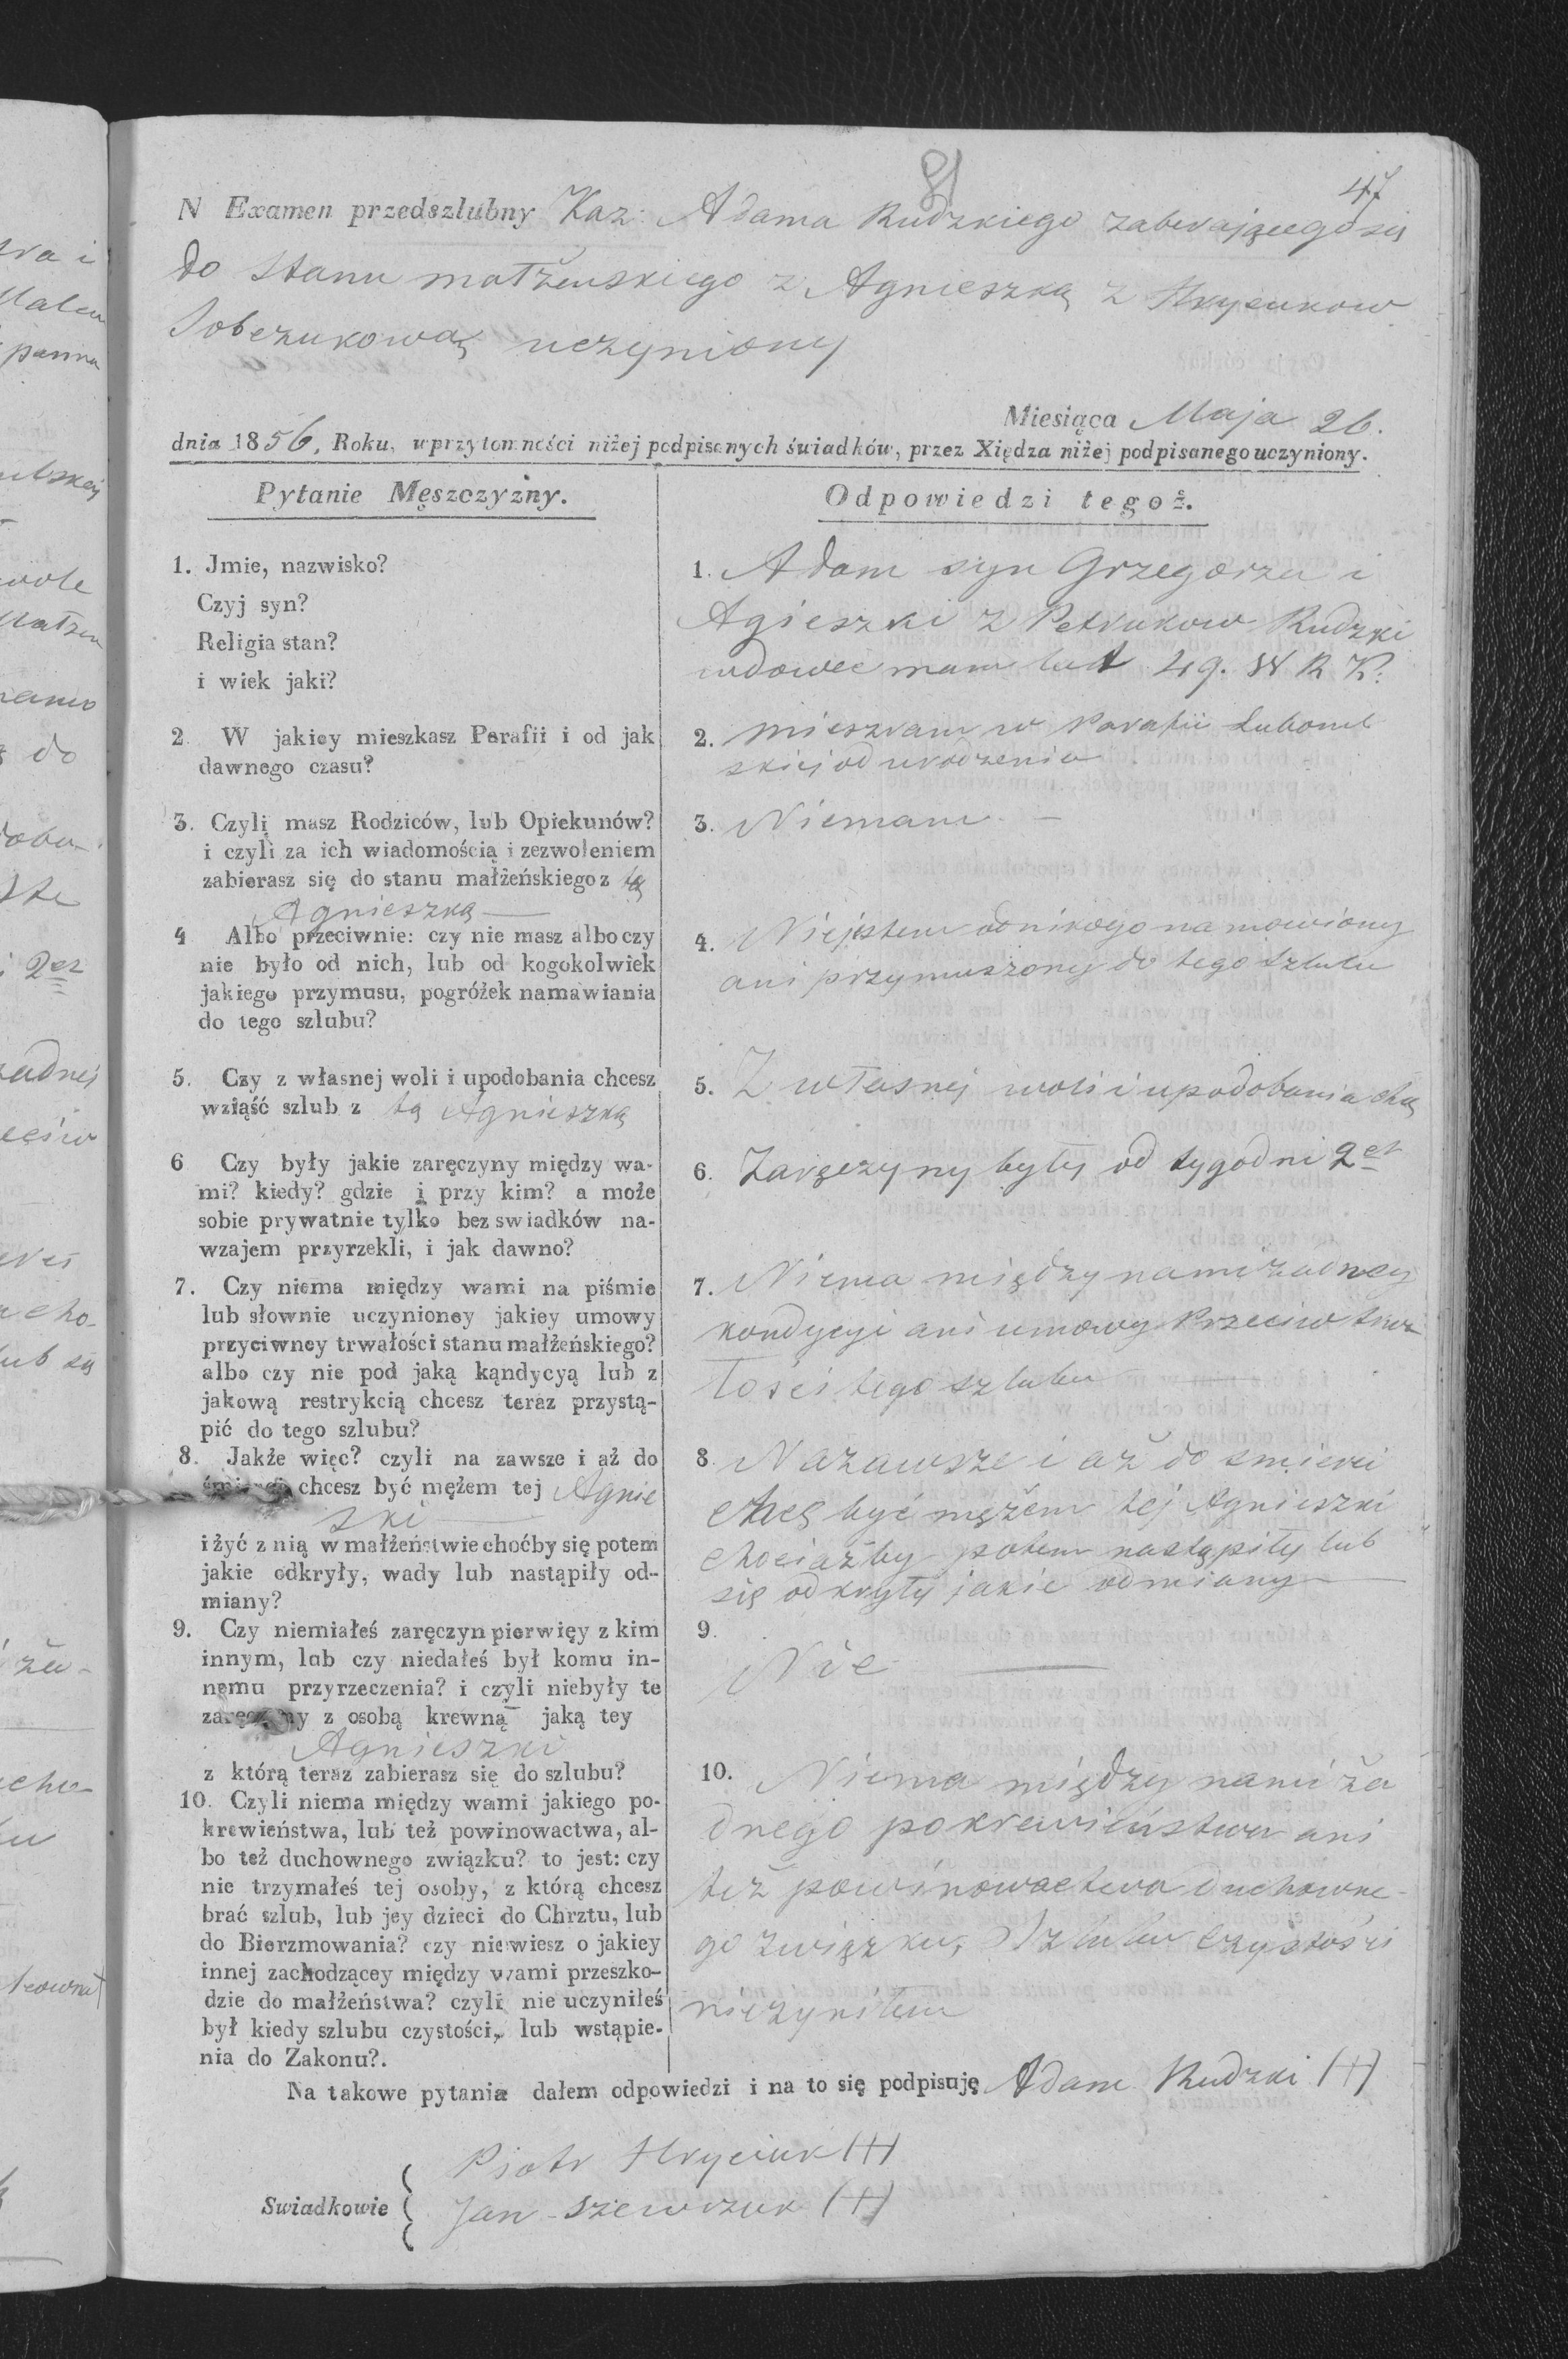 47
81
N Examen przedszlubny Kaz: Adama Rudzkiego zabierającego się
do Stanu małżenskiego z Agnieszką z Hrycukow
Sobczukową uczyniony
Miesiąca Maja 26.
dnia 1856, Roku, w przytomności niżej podpisanych świadków, przez Xiędza niżej podpisanego uczyniony.
Pytanie Męszczyzny.
1. Jmie, nazwisko?
Czyj syn?
Religia stan?
i wiek jaki?
2 W jakiey mieszkasz Parafii i od jak
dawnego czasu?
3. Czyli masz Rodziców, lub Opiekunów?
i czyli za ich wiadomością i zezwoleniem
zabierasz się do stanu małżeńskiego z tą
Agnieszką
4 Albo przeciwnie: czy nie masz albo czy
nie było od nich, lub od kogokolwiek
jakiego przymusu, pogróżek namawiania
do tego szlubu?
5. Czy z własnej woli i upodobania chcesz
wziąść szlub z tą Agnieszką
6 Czy były jakie zaręczyny między wa-
mi? kiedy? gdzie i przy kim? a może
sobie prywatnie tylko bez swiadków na-
wzajem przyrzekli, i jak dawno?
7. Czy niema między wami na piśmie
lub słownie uczynioney jakiey umowy
przyciwney trwałości stanu małżeńskiego?
albo czy nie pod jaką kąndycyą lub z
jakową restrykcią chcesz teraz przystą-
pić do tego szlubu?
8. Jakże więc? czyli na zawsze i aż do
chcesz być mężem tej Agnie
szki
i żyć z nią w małżeństwie choćby się potem
jakie odkryły, wady lub nastąpiły od-
miany?
9. Czy niemiałeś zaręczyn pierwięy z kim
innym, lub czy niedałeś był komu in-
nemu przyrzeczenia? i czyli niebyły te
zaręczyny z osobą krewną jaką tey
Agnieszki
z którą teraz zabierasz się do szlubu?
10. Czyli niema między wami jakiego po-
krewieństwa, lub też powinowactwa, al-
bo też duchownego związku? to jest: czy
nie trzymałeś tej osoby, z którą chcesz
brać szlub, lub jey dzieci do Chrztu, lub
do Bierzmowania? czy niewiesz o jakiey
innej zachodzącey między wami przeszko-
dzie do małżeństwa? czyli nie uczyniłeś
był kiedy szlubu czystości, lub wstąpie-
nia do Zakonu?.
Odpowiedzi tegoż.
1. Adam syn Grzegorza i
Agieszki z Petrukow Rudzki
wdowiec mam lat 49. W R K:
2. mieszkam w Parafii Luboml
skiej od urodzenia
3. Niemam
4. Niejestem od nikogo namowiony
ani przymuszony do tego szlubu
5. Z własnej woli i upodobania chcę
6. Zaręczyny były od tygodni 2ch
7. Niema między nami żadney
kondycyi ani umowy przeciw trwa
łości tego szlubu
8. Nazawsze i aż do smierci
chcę być mężem tej Agnieszki
chociażby potem nastąpiły lub
się odkryły jakie odmiany
9. Nie
10. Niema między nami ża
dnego pokrewieństwa ani
też powinowactwa duchowne-
go związku, Szlubu czystości
nieczyniłem
Na takowe pytania dałem odpowiedzi i na to się podpisuję Adam Rudzki (+)
Swiadkowie
Piotr Hryciuk (+)
Jan Szewczuk (+)